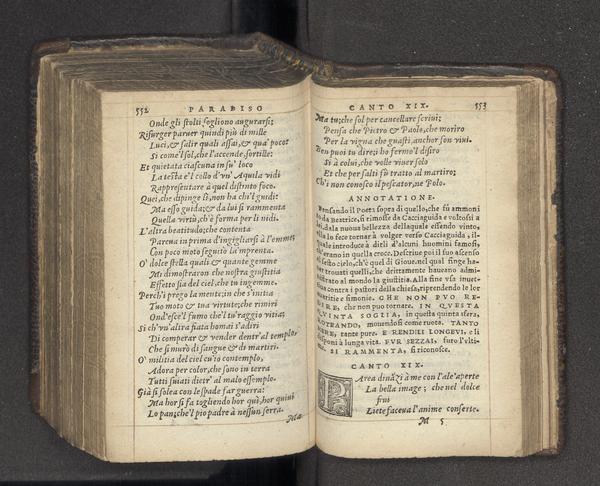 552 PARADISO
Onde gli stolti sogliono augurarsi;
Risurger parver quindi più di mille
Luci, & salir quali assai, & qua' poco;
Si come'l sol, che l'accende, sortille:
Et quietata ciascuna in su' loco
La testa e'l collo d'vn' Aquila vidi
Rappresentare à quel distinto foco.
Quei, che dipinge lì, non ha chi'l guidi:
Ma esso guida; & da lui si rammenta
Quella virtù, ch'è forma per li nidi.
L'altra beatitudo; che contenta
Pareua in prima d'ingigliarsi à l'emme;
Con poco moto seguitò la'mprenta.
O' dolce stella quali & quante gemme
Mi dimostraron che nostra giustitia
Effetto sia del ciel, che tu ingemme.
Perch'i prego la mente; in che s'initia
Tuo moto & tua virtute; che rimiri
Ond'esce'l fumo che'l tu'raggio vitia;
Si ch'vn'altra fiata homai s'adiri
Di comperar & vender dentr'al templo,
Che si murò di sangue & di martiri.
O' militia del ciel cu'io contemplo,
Adora per color, che sono in terra
Tutti suiati dietr' al malo essemplo.
Già si solea con le spade far guerra:
Ma hor si fa togliendo hor quì, hor quiui
Lo pan; che'l pio padre à nessun serra.
Ma
CANTO XIX. 553
Ma tu; che sol per cancellare scriui;
Pensa che Pietro & Paolo, che moriro
Per la vigna che guasti, anchor son viui.
Ben puoi tu dire; i ho fermo'l disiro
Sì à colui, che volle viuer solo
Et che per salti fù tratto al martiro;
Ch'i non conosco il pescator, ne Polo.
ANNOTATIONE.
Pensando il Poeta sopra di quello, che fù ammoni
to da Beatrice, si rimosse da Cacciaguida e voltosi a
lei, dala nuoua bellezza dellaquale essendo vinto,
ella lo fece tornar à volger verso Cacciaguida, il-
quale introduce à dirli d'alcuni huomini famosi,
ch'erano in quella croce. Descriue poi il suo ascenso
al sesto cielo, ch'è quel di Gioue, nel qual finge ha-
uer trouati quelli, che drittamente haueano admi-
nistrato al mondo la giustitia. Alla fine vsa inuet-
tiua contra i pastori della chiesa, riprendendo le lor
auaritie e simonie. CHE NON PVO RE-
DIRE, che non puo tornare. IN QVESTA
QVINTA SOGLIA, in questa quinta sfera,
ROTEANDO, mouendosi come rueta. TANTO
MERE, tante pure. E RENDEI LONGEVI, e li
disponi à lunga vita. FVR SEZZAI, furo l'vlti-
me. SI RAMMENTA, si riconosce.
CANTO XIX.
PArea dinãzi à me con l'ale'aperte
La bella image; che nel dolce
frui
Liete faceua l'anime conserte.
M 5